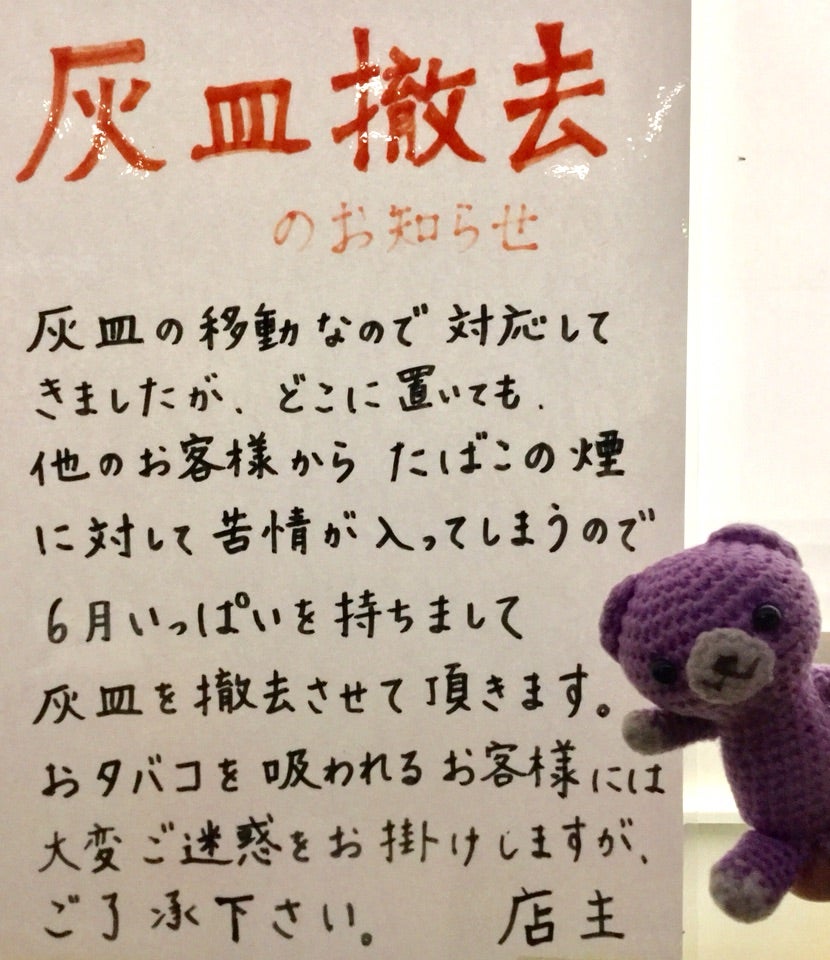 灰皿撤去
のお知らせ
灰皿の移動なので対応して
きましたが、どこに置いても、
他のお客様から たばこの煙
に対して苦情が入ってしまうので
6月いっぱいを持ちまして
灰皿を撤去させて頂きます。
おタバコを吸われるお客様には
大変ご迷惑をお掛けしますが、
ご了承下さい。 店主